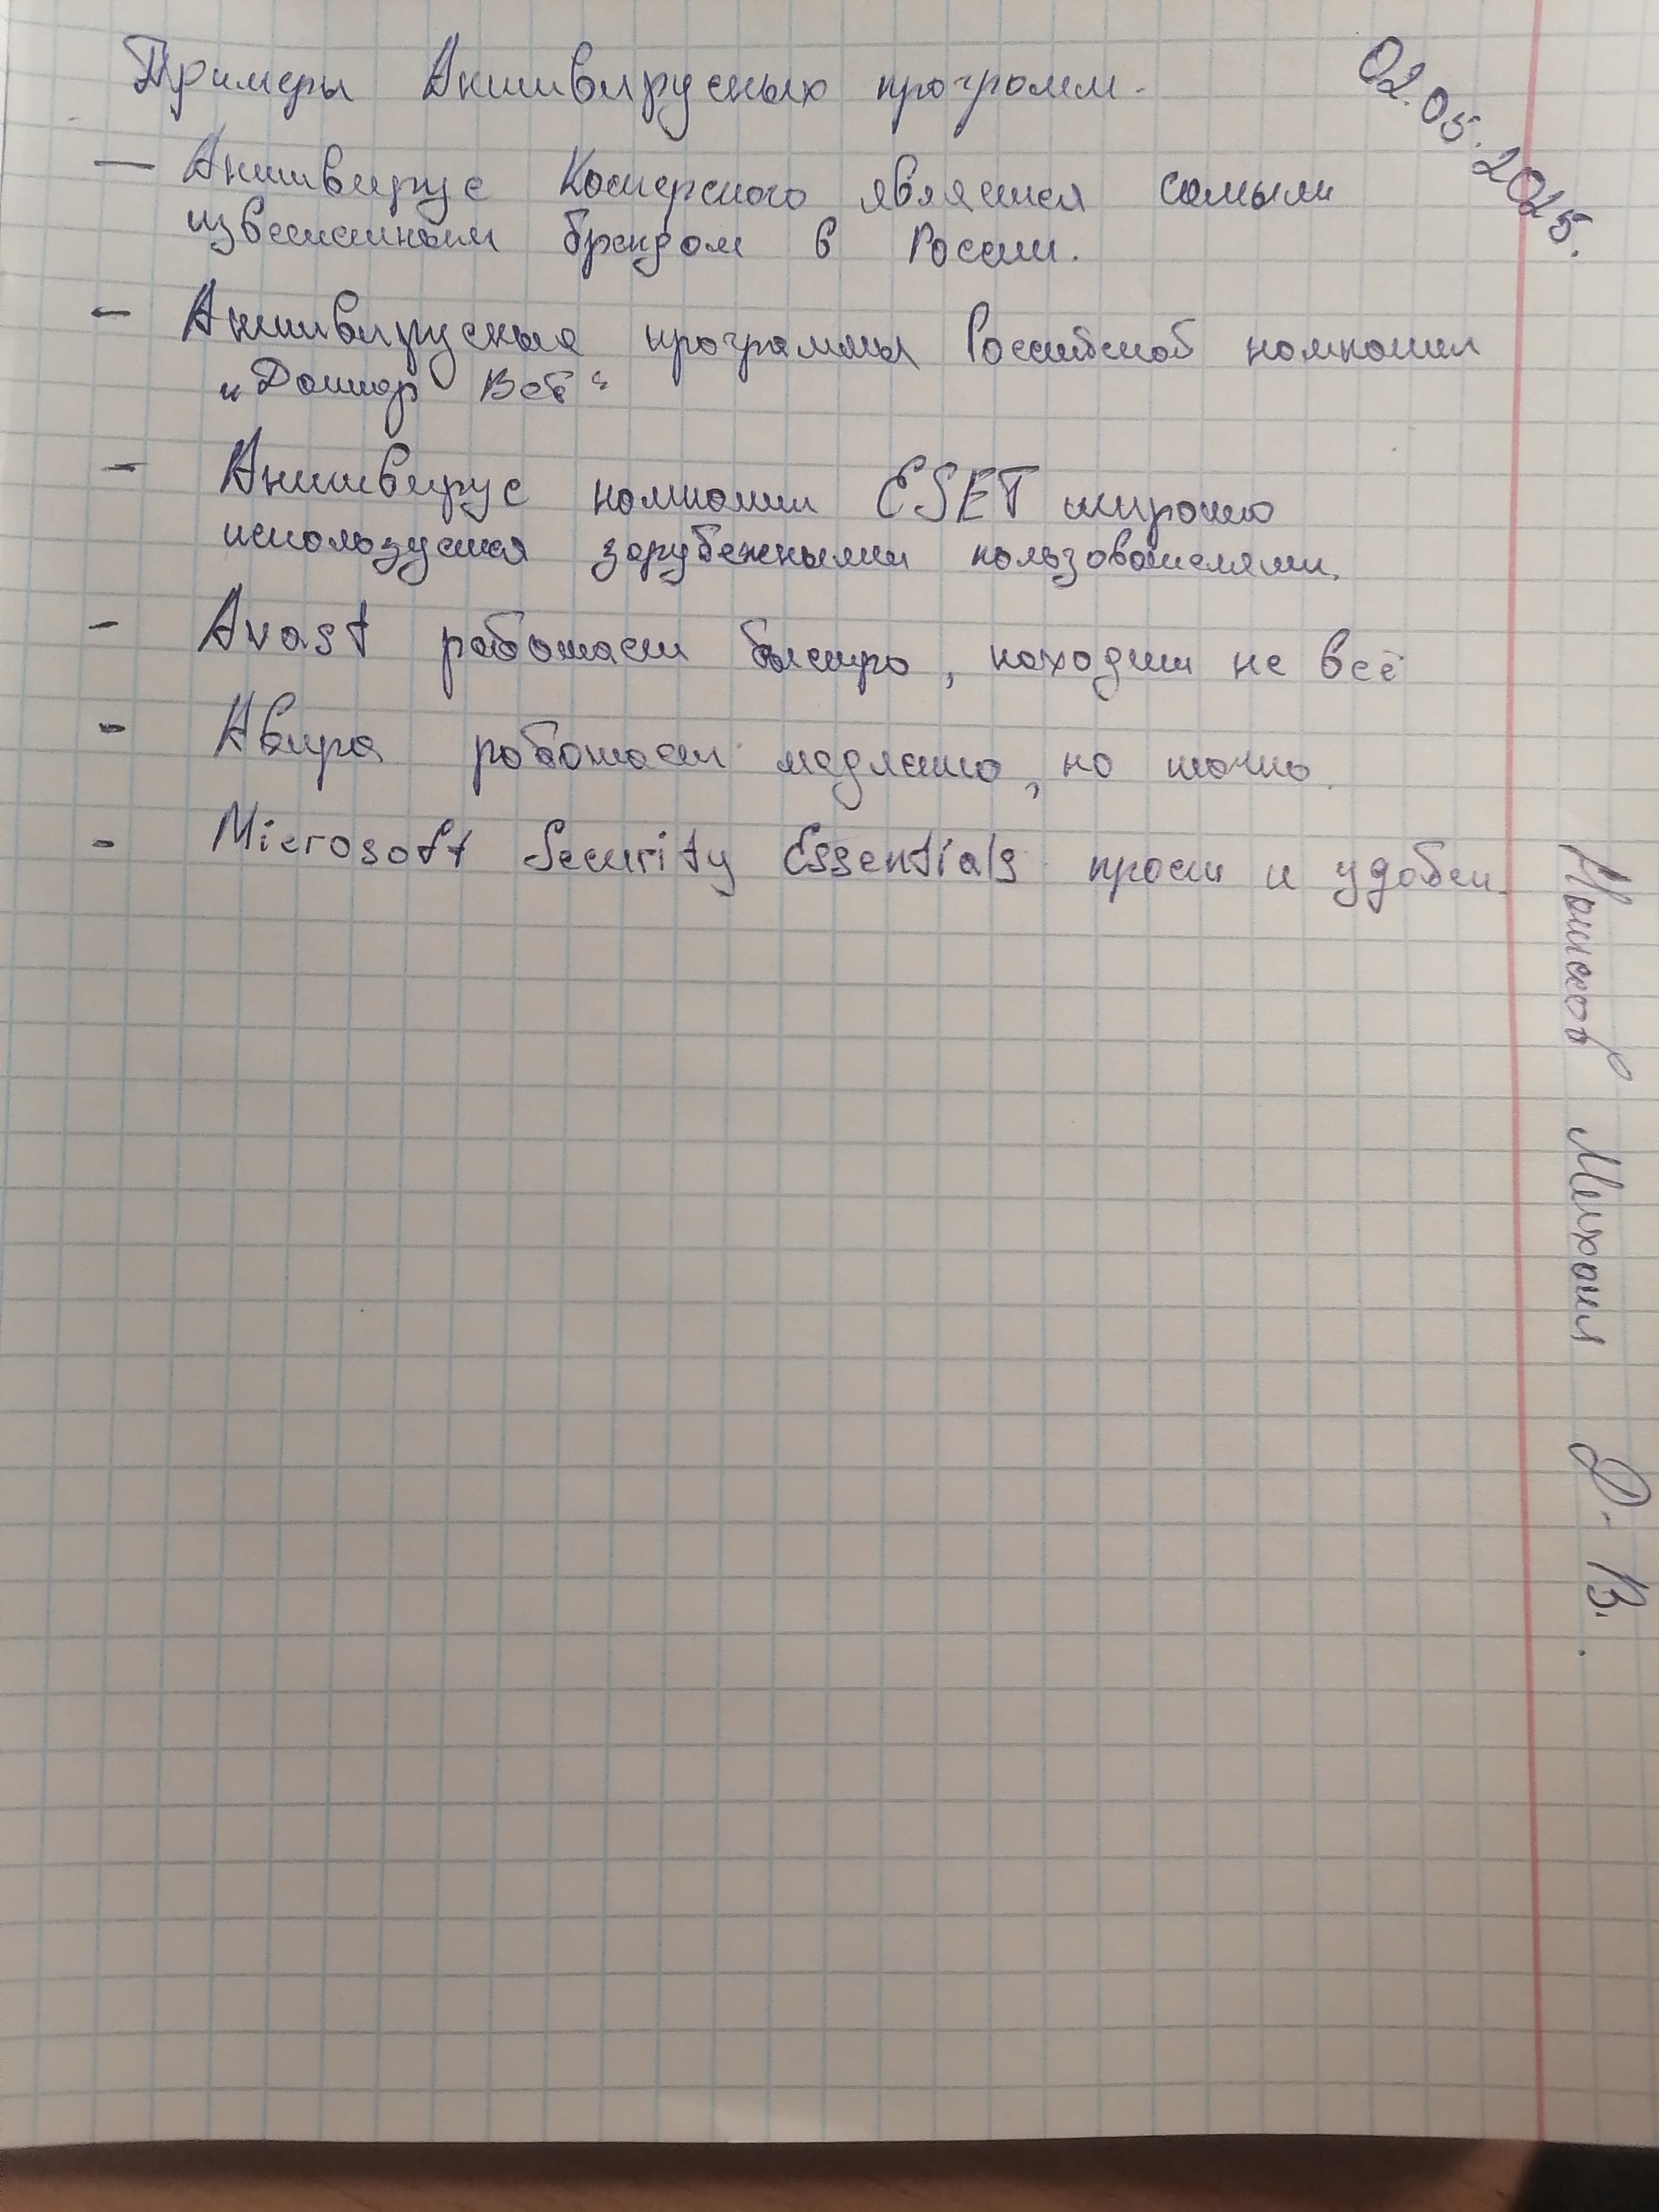 Примеры Антивирусных программ.
02.05.2025.
— Антивирус Касперского является самым
известным брендом в России.
- Антивирусные программы Российской компании
"Доктор Веб"
- Антивирус компании ESET широко
используется зарубежными пользователями.
- Avast работает быстро, находит не всё
- Авира работает медленно, но точно.
- Microsoft Security Essentials прост и удобен.
Михаил Д-В.